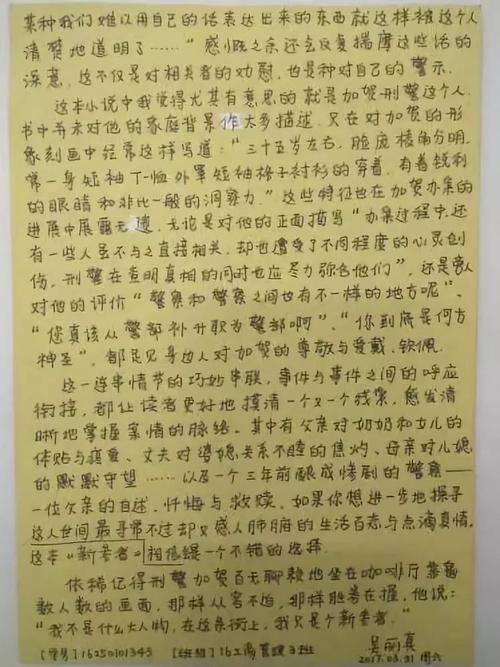 某种我们难以用自己的话表达出来的东西就这样被这个人
清楚地道明了……”感慨之余还会反复揣摩这些话的
深意，这不仅是对相关者的劝慰，也是种对自己的警示。
这本小说中我觉得尤其有意思的就是加贺刑警这个人，
书中并未对他的家庭背景作太多描述，只在对加贺的形
象刻画中经常这样写道：“三十五岁左右，脸庞棱角分明，
常一身短袖T-恤外罩短袖格子衬衫的穿着，有着锐利
的眼睛和非比一般的洞察力。”这些特征也在加贺办案的
进展中展露无遗，无论是对他的正面描写“办案过程中，还
有一些人虽不与之直接相关，却也遭受了不同程度的心灵创
伤，刑警在查明真相的同时也应尽力弥合他们”，还是旁人
对他的评价“警察和警察之间也有不一样的地方呢”、
“您真该从警部补升职为警部啊”、“你到底是何方
神圣”，都足见身边人对加贺的尊敬与爱戴、钦佩。
这一连串情节的巧妙串联，事件与事件之间的呼应
衔接，都让读者更好地摸清一个又一个线索，愈发清
晰地掌握案情的脉络。其中有父亲对奶奶和女儿的
体贴与疼爱、丈夫对婆媳关系不睦的焦灼、母亲对儿媳
的默默守望……以及一个三年前酿成悲剧的警察——
一位父亲的自述、忏悔与救赎。如果你想进一步地探寻
这人世间最寻常不过却又感人肺腑的生活百态与点滴真情，
这本《新参者》相信是一个不错的选择。
依稀记得刑警加贺百无聊赖地坐在咖啡厅靠窗
数人数的画面，那样从容不迫，那样胜券在握，他说：
“我不是什么大人物，在这条街上，我只是个新参者。”
吴丽真
[学号] 16250101343 [班级] 16工商管理3班 2017.03.31 周六